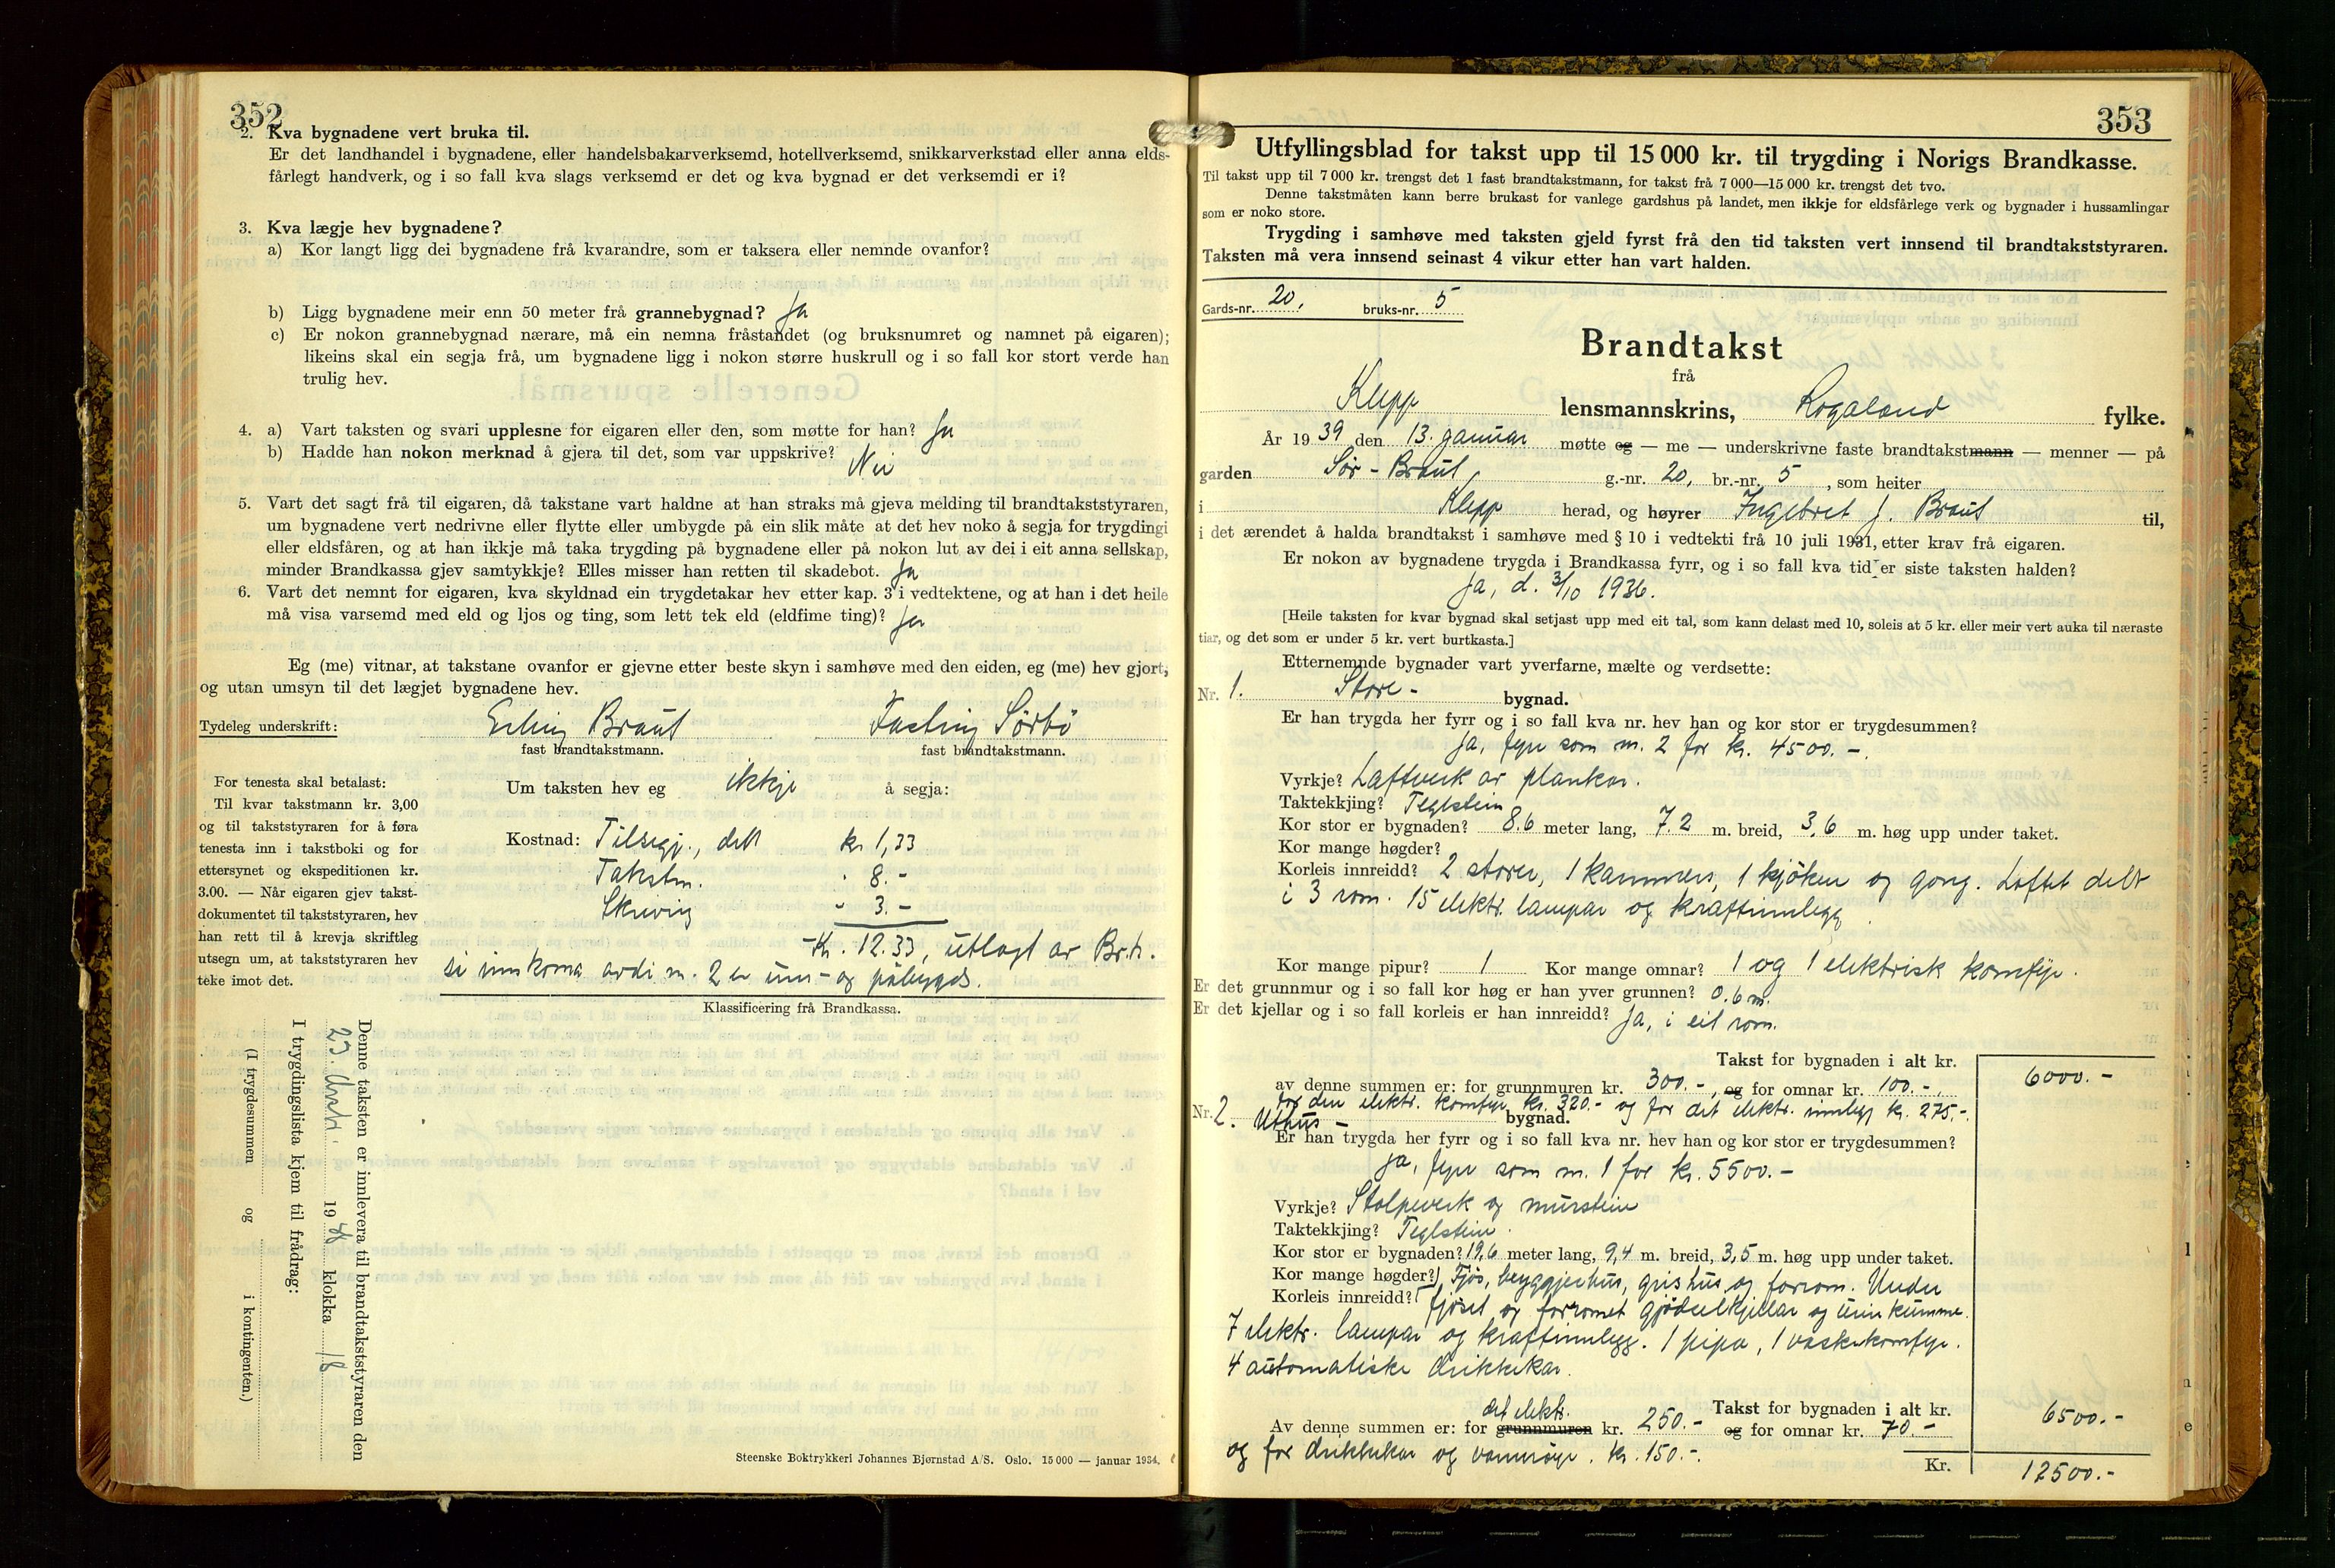 352
2. Kva bygnadene vert bruka til.
Er det landhandel i bygnadene, eller handelsbakarverksemd, hotellverksemd, snikkarverkstad eller anna elds-
fårlegt handverk, og i so fall kva slags verksemd er det og kva bygnad er det verksemdi er i?
3. Kva lægje hev bygnadene?
a) Kor langt ligg dei bygnadene frå kvarandre, som er taksera eller nemnde ovanfor?
b) Ligg bygnadene meir enn 50 meter frå grannebygnad? Ja
c) Er nokon grannebygnad nærare, må ein nemna fråstandet (og bruksnumret og namnet på eigaren);
likeins skal ein segja frå, um bygnadene ligg i nokon større huskrull og i so fall kor stort verde han
trulig hev.
4. a) Vart taksten og svari upplesne for eigaren eller den, som møtte for han? Ja
b) Hadde han nokon merknad å gjera til det, som var uppskrive? Nei
5. Vart det sagt frå til eigaren, då takstane vart haldne at han straks må gjeva melding til brandtakststyraren,
um bygnadene vert nedrivne eller flytte eller umbygde på ein slik måte at det hev noko å segja for trygdingi
eller eldsfåren, og at han ikkje må taka trygding på bygnadene eller på nokon lut av dei i eit anna sellskap,
minder Brandkassa gjev samtykkje? Elles misser han retten til skadebot. Ja
6. Vart det nemnt for eigaren, kva skyldnad ein trygdetakar hev etter kap. 3 i vedtektene, og at han i det heile
må visa varsemd med eld og ljos og ting, som lett tek eld (eldfime ting)? Ja
Eg (me) vitnar, at takstane ovanfor er gjevne etter beste skyn i samhøve med den eiden, eg (me) hev gjort,
og utan umsyn til det lægjet bygnadene hev.
Tydeleg underskrift: Erling Braut Fasting Sørbø
fast brandtakstmann. fast brandtakstmann.
For tenesta skal betalast:
Til kvar takstmann kr. 3,00
og til takststyraren for å føra
tenesta inn i takstboki og for
ettersynet og ekspeditionen kr.
3.00. — Når eigaren gjev takst-
dokumentet til takststyraren, hev
han rett til å krevja skriftleg
utsegn um, at takststyraren hev
teke imot det.
Um taksten hev eg ikkje å segja:
Kostnad: Tilsegj., delt kr 1,33
Takstm. " 8.-
Skriving " 3.-
Kr. 12.33, utlagt av Br.k.
si innkoma avdi nr. 2 er um- og påbygd.
Klassificering frå Brandkassa.
Denne taksten er innlevera til brandtakststyraren den
23. 19 klokka 18
I trygdingslista kjem til frådrag:
(I trygdesummen og i kontingenten.)
Steenske Boktrykkeri Johannes Bjørnstad A/S. Oslo. 15 000 — januar 1934.
353
Utfyllingsblad for takst upp til 15 000 kr. til trygding i Norigs Brandkasse.
Til takst upp til 7 000 kr. trengst det 1 fast brandtakstmann, for takst frå 7 000—15 000 kr. trengst det tvo.
Denne takstmåten kann berre brukast for vanlege gardshus på landet, men ikkje for eldsfårlege verk og bygnader i hussamlingar
som er noko store.
Trygding i samhøve med taksten gjeld fyrst frå den tid taksten vert innsend til brandtakststyraren.
Taksten må vera innsend seinast 4 vikur etter han vart halden.
Gards-nr. 20, bruks-nr. 5
Brandtakst
frå
Klepp lensmannskrins, Rogaland fylke.
År 1939 den 13. januar møtte og — me — underskrivne faste brandtakstmann — menner — på
garden Sør-Braut g.-nr. 20, br.-nr. 5, som heiter
i Klepp herad, og høyrer Ingebret J. Braut til,
i det ærendet å halda brandtakst i samhøve med § 10 i vedtekti frå 10 juli 1931, etter krav frå eigaren.
Er nokon av bygnadene trygda i Brandkassa fyrr, og i so fall kva tid er siste taksten halden?
Ja, d. 3/10 1936.
[Heile taksten for kvar bygnad skal setjast upp med eit tal, som kann delast med 10, soleis at 5 kr. eller meir vert auka til næraste
tiar, og det som er under 5 kr. vert burtkasta.]
Etternemnde bygnader vart yverfarne, mælte og verdsette:
Nr. 1. Store- bygnad.
Er han trygda her fyrr og i so fall kva nr. hev han og kor stor er trygdesummen?
Ja, fyrr som nr. 2 for kr. 4500.-
Vyrkje? Laftverk av plankar.
Taktekkjing? Teglstein
Kor stor er bygnaden? 8.6 meter lang, 7.2 m. breid, 3,6 m. høg upp under taket.
Kor mange høgder?
Korleis innreidd? 2 stover, 1 kammers, 1 kjøken og gong. Loftet delt
i 3 rom. 15 elektr. lampar og kraftinnlegg.
Kor mange pipur? 1 Kor mange omnar? 1 og 1 elektrisk komfyr.
Er det grunnmur og i so fall kor høg er han yver grunnen? 0.6 m.
Er det kjellar og i so fall korleis er han innreidd? Ja, i eit rom.
Takst for bygnaden i alt kr. 6000.-
av denne summen er: for grunnmuren kr. 300.-, og for omnar kr. 100.-,
for den elektr. komfyr kr. 320.- og for det elektr. innlegg kr. 275.-
Nr. 2. Uthus- bygnad.
Er han trygda her fyrr og i so fall kva nr. hev han og kor stor er trygdesummen?
Ja, fyrr som nr. 1 for kr. 5500.-
Vyrkje? Stolpeverk og murstein
Taktekkjing? Teglstein.
Kor stor er bygnaden? 19,6 meter lang, 9,4 m. breid, 3,5 m. høg upp under taket.
Kor mange høgder? Fjøs, bryggjerhus, grishus og forrom. Under
Korleis innreidd? fjøset og forromet gjødselkjellar og urinkumme.
7 elektr. lampar og kraftinnlegg. 1 pipa, 1 vaskekomfyr.
4 automatiske drikkekar.
Takst for bygnaden i alt kr. 6500.-
det elektr.
Av denne summen er: for grunnmuren kr. 250.- og for omnar kr. 70.-
og for drikkekar og vannrøyr. kr. 150.-.
Kr. 12500.-